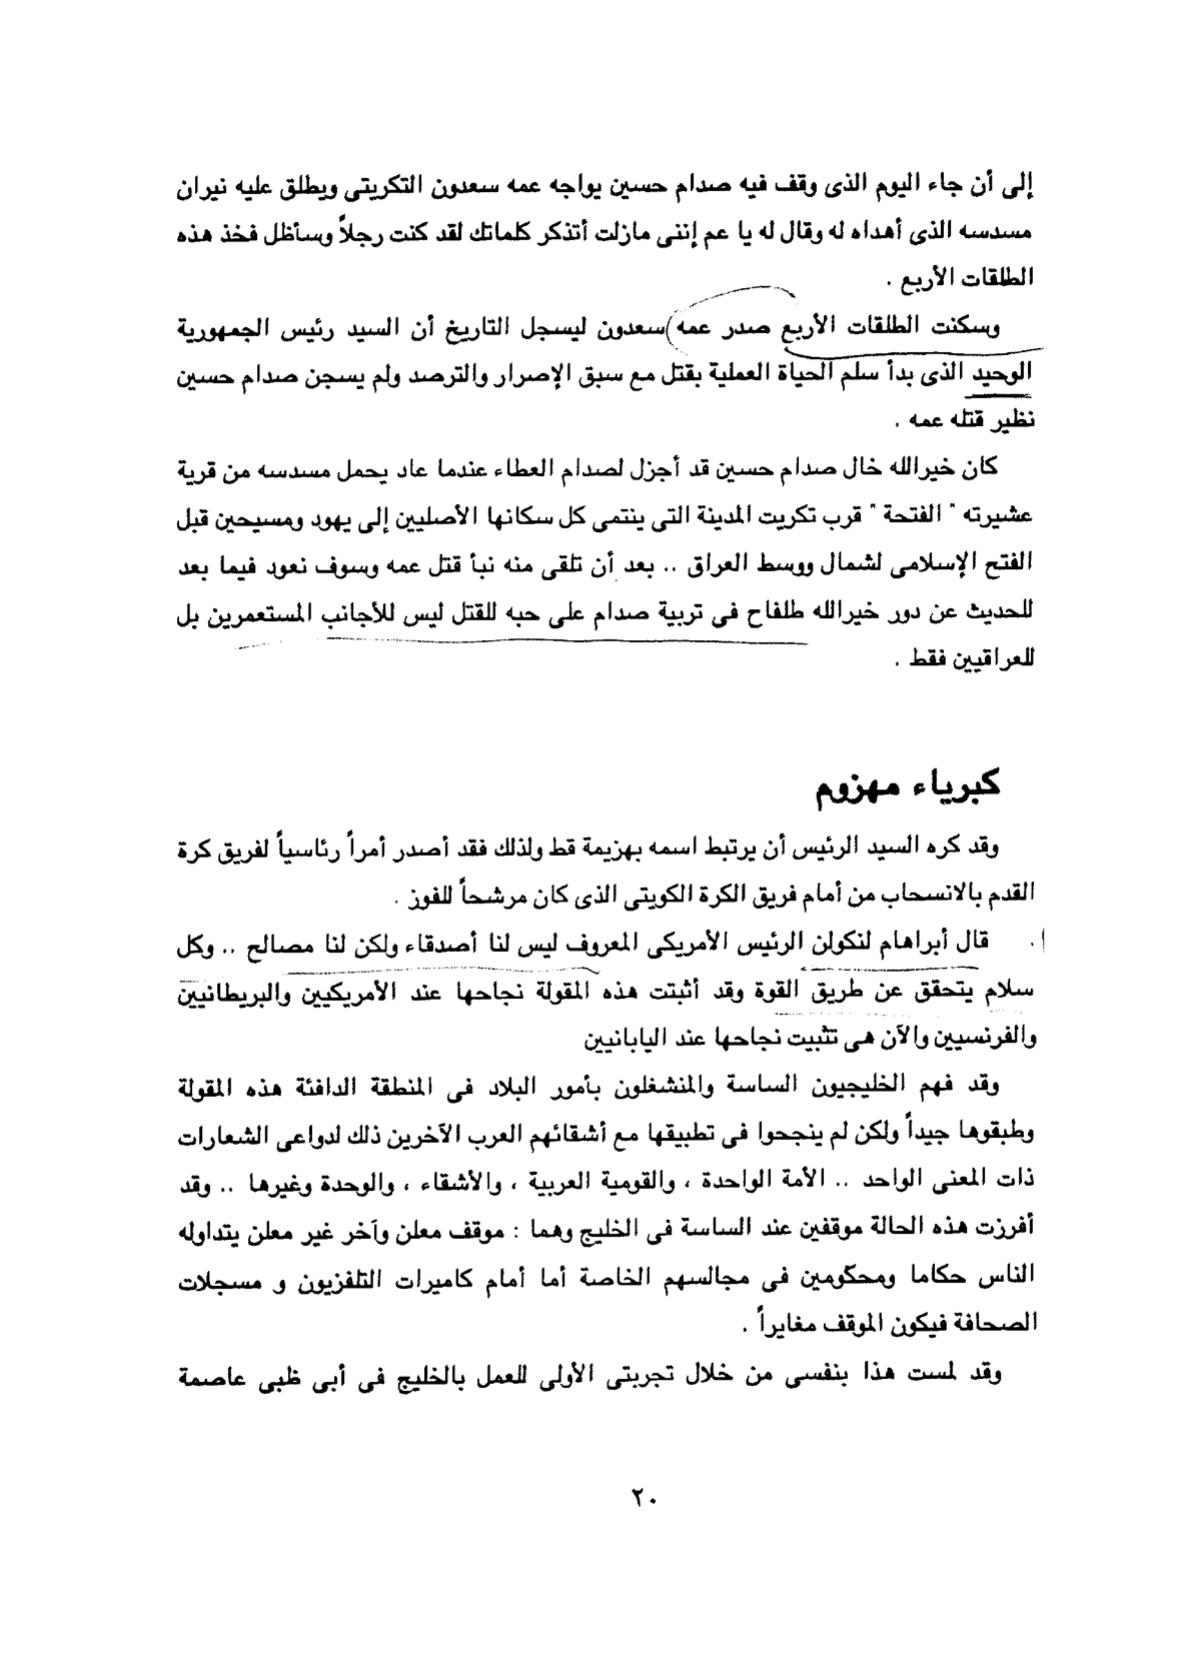 إلى أن جاء اليوم الذى وقف فيه صدام حسين يواجه عمه سعدون التكريتى ويطلق عليه نيران
مسدسه الذى أهداه له وقال له يا عم إننى مازلت أتذكر كلماتك لقد كنت رجلاً وسأظل فخذ هذه
الطلقات الأربع .
وسكنت الطلقات الأربع صدر عمه سعدون ليسجل التاريخ أن السيد رئيس الجمهورية
الوحيد الذى بدأ سلم الحياة العملية بقتل مع سبق الإصرار والترصد ولم يسجن صدام حسين
نظير قتله عمه .
كان خيرالله خال صدام حسين قد أجزل لصدام العطاء عندما عاد يحمل مسدسه من قرية
عشيرته " الفتحة " قرب تكريت المدينة التى ينتمى كل سكانها الأصليين إلى يهود ومسيحين قبل
الفتح الإسلامى لشمال ووسط العراق .. بعد أن تلقى منه نبأ قتل عمه وسوف نعود فيما بعد
للحديث عن دور خيرالله طلفاح فى تربية صدام على حبه للقتل ليس للأجانب المستعمرين بل
للعراقيين فقط .
كبرياء مهزوم
وقد كره السيد الرئيس أن يرتبط اسمه بهزيمة قط ولذلك فقد أصدر أمراً رئاسياً لفريق كرة
القدم بالانسحاب من أمام فريق الكرة الكويتى الذى كان مرشحاً للفوز .
قال أبراهام لنكولن الرئيس الأمريكى المعروف ليس لنا أصدقاء ولكن لنا مصالح .. وكل
سلام يتحقق عن طريق القوة وقد أثبتت هذه المقولة نجاحها عند الأمريكيين والبريطانيين
والفرنسيين والآن هى تثبيت نجاحها عند اليابانيين
وقد فهم الخليجيون الساسة والمنشغلون بأمور البلاد فى المنطقة الدافئة هذه المقولة
وطبقوها جيداً ولكن لم ينجحوا فى تطبيقها مع أشقائهم العرب الآخرين ذلك لدواعى الشعارات
ذات المعنى الواحد .. الأمة الواحدة ، والقومية العربية ، والأشقاء ، والوحدة وغيرها .. وقد
أفرزت هذه الحالة موقفين عند الساسة فى الخليج وهما : موقف معلن وآخر غير معلن يتداوله
الناس حكاما ومحكومين فى مجالسهم الخاصة أما أمام كاميرات التلفزيون و مسجلات
الصحافة فيكون الموقف مغايراً .
وقد لمست هذا بنفسى من خلال تجربتى الأولى للعمل بالخليج فى أبى ظبى عاصمة
٢٠